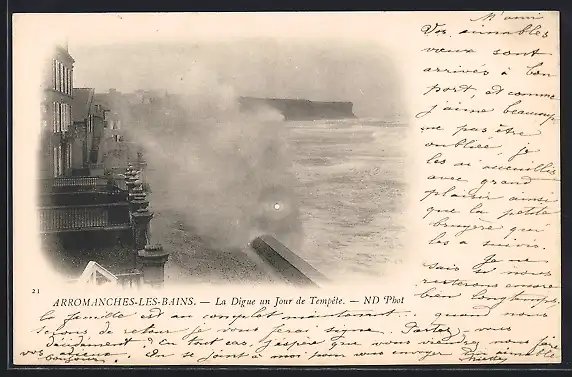 M' ami
Vos aimables
vœux sont
arrivés à bon
port, et comme
j'aime beaucoup
ne pas être
oubliée, je
les ai accueillis
avec grand
plaisir ainsi
que la petite
bruyère qui
les a suivis.
Je ne
sais si nous
resterons encore
bien longtemps
21
ARROMANCHES-LES-BAINS. — La Digue un Jour de Tempête. — ND Phot
la famille est au complet maintenant. quand nous
serons de retour je vous ferai signe. Partez-vous
décidément? En tout cas, j'espère que vous viendrez nous faire
vos adieux. On se joint à moi pour vous envoyer
toujours.